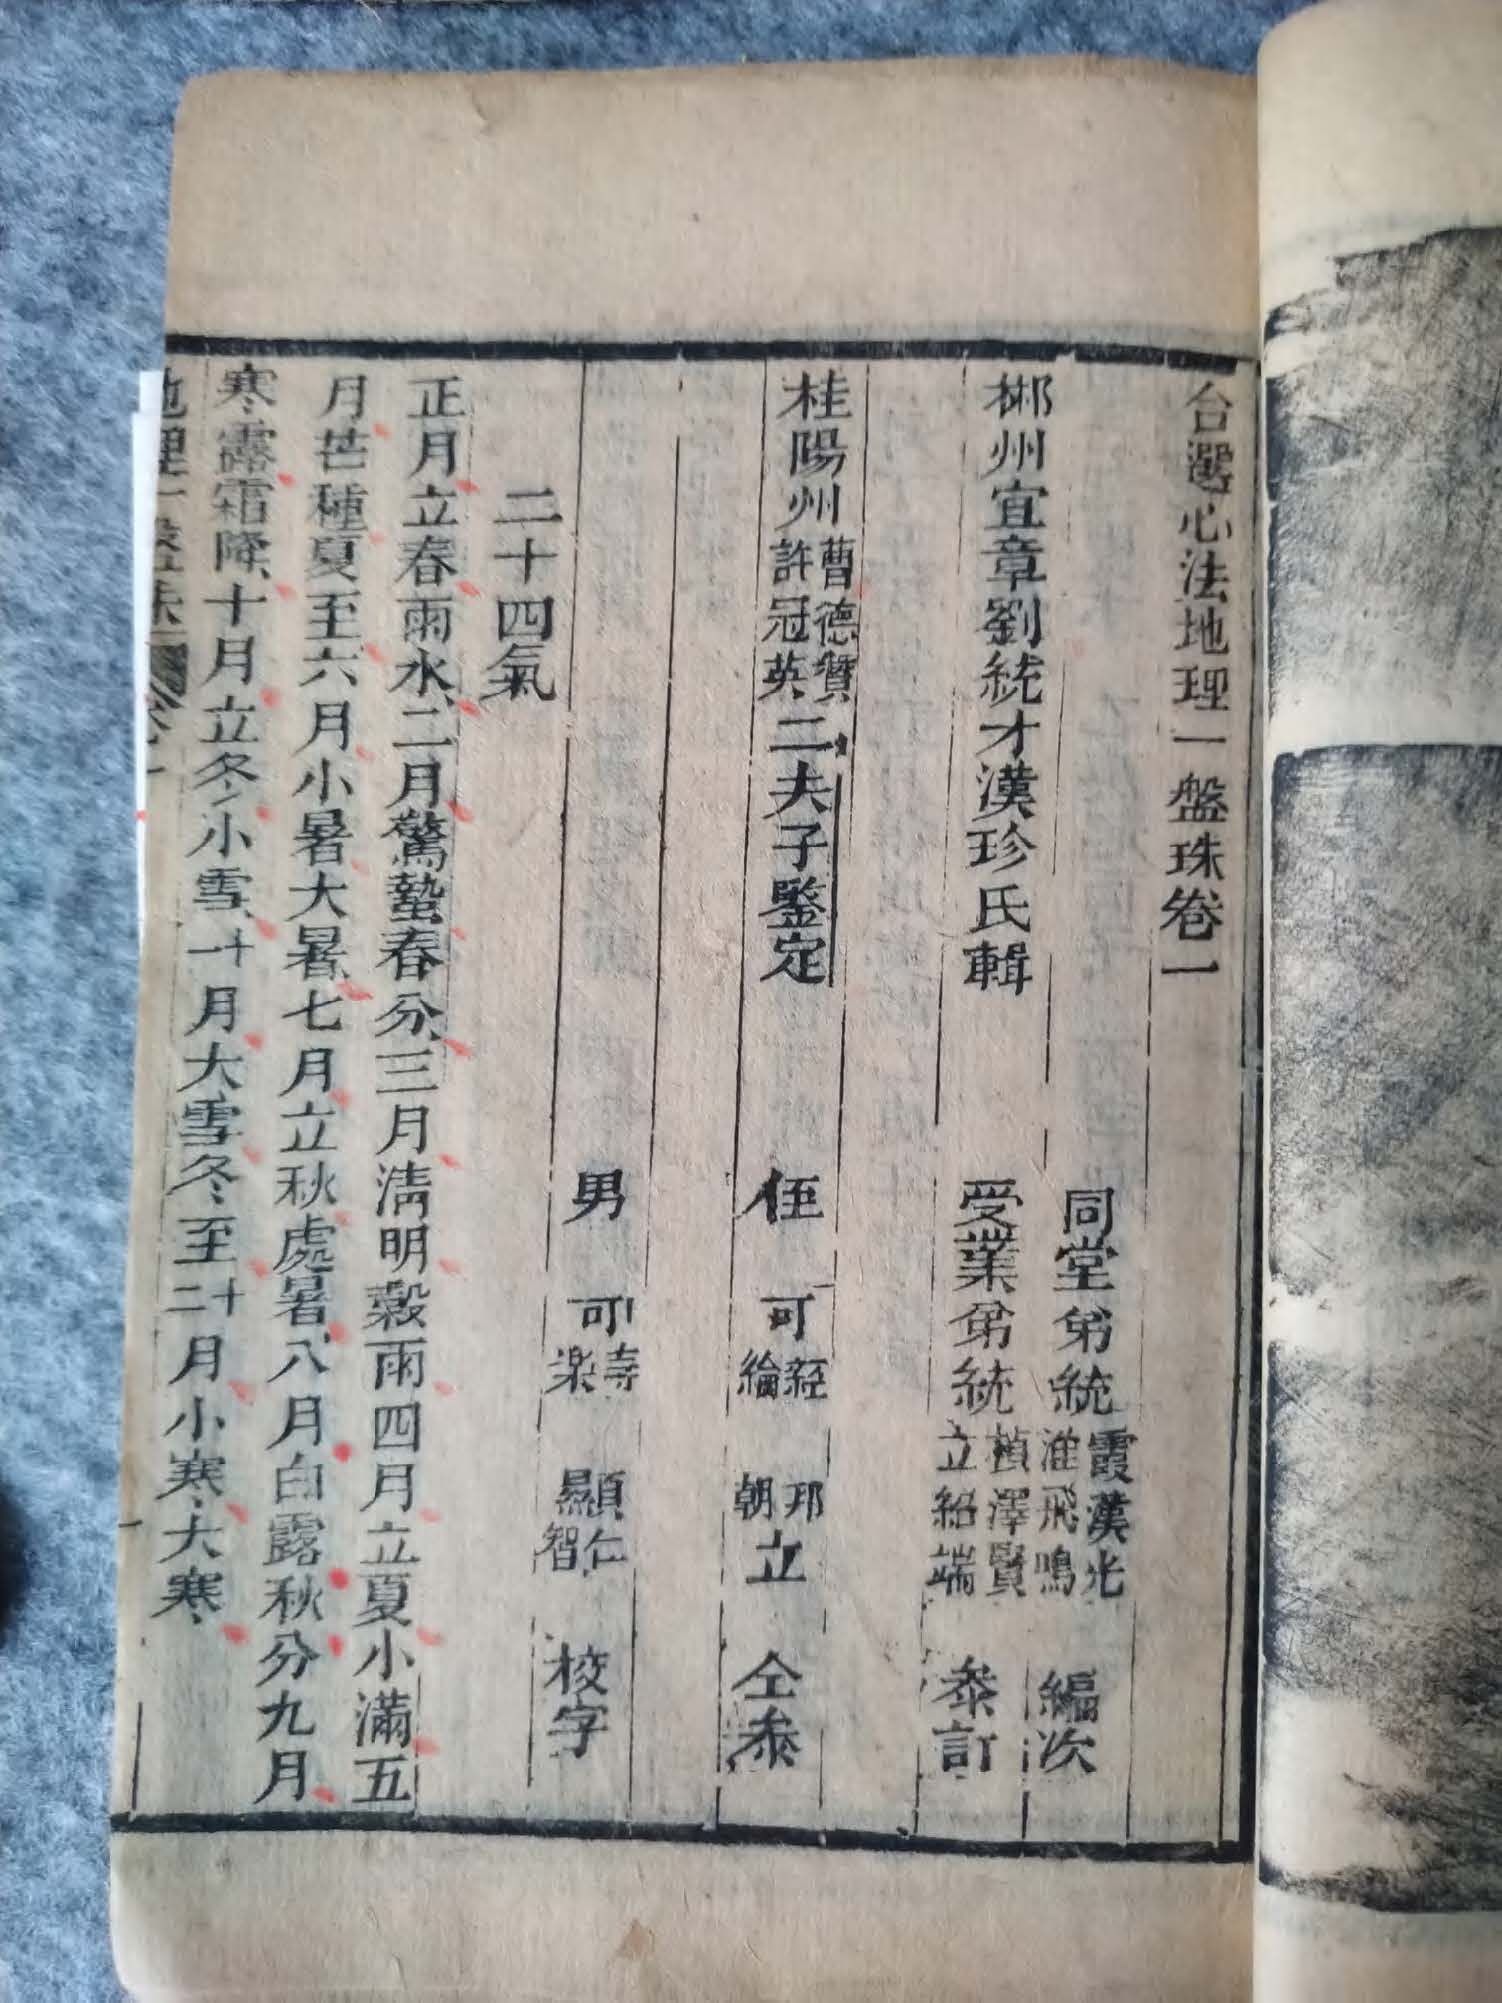 台選心法地理一盤珠卷一
同堂弟統霞漢光淮飛鳴編次
郴州宜章劉統才漢珍氏輯
受業弟統楨澤賢立紹端叅訂
桂陽州曹德贊許冠英二夫子鑒定
侄可經綸邦朝立仝叅
男可壽楽顯仁智校字
二十四氣
正月立春雨水二月驚蟄春分三月淸明穀雨四月立夏小滿五
月芒種夏至六月小暑大暑七月立秋處暑八月白露秋分九月
寒露霜降十月立冬小雪十一月大雪冬至十二月小寒大寒
地理一盤珠 卷一